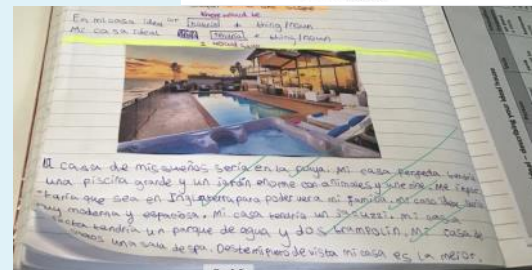 there would be
En mi casa ideal habría + thing/noun
Mi casa ideal tendría + thing/noun
I would have
casa de mis sueños sería en la playa. Mi casa perfecta tendría
una piscina grande y un jardín enorme con animales y une cine. Me
taria que sea en Inglaterra para poder ver a mi familia. Mi casa idea sería
muy moderna y espaciosa. Mi casa tendría un jacuzzi. mi casa
tendría un parque de agua y dos trampolin. Mi casa de
una sala de spa. Desde mi punto de vista mi casa es la mejor.
your ideal house